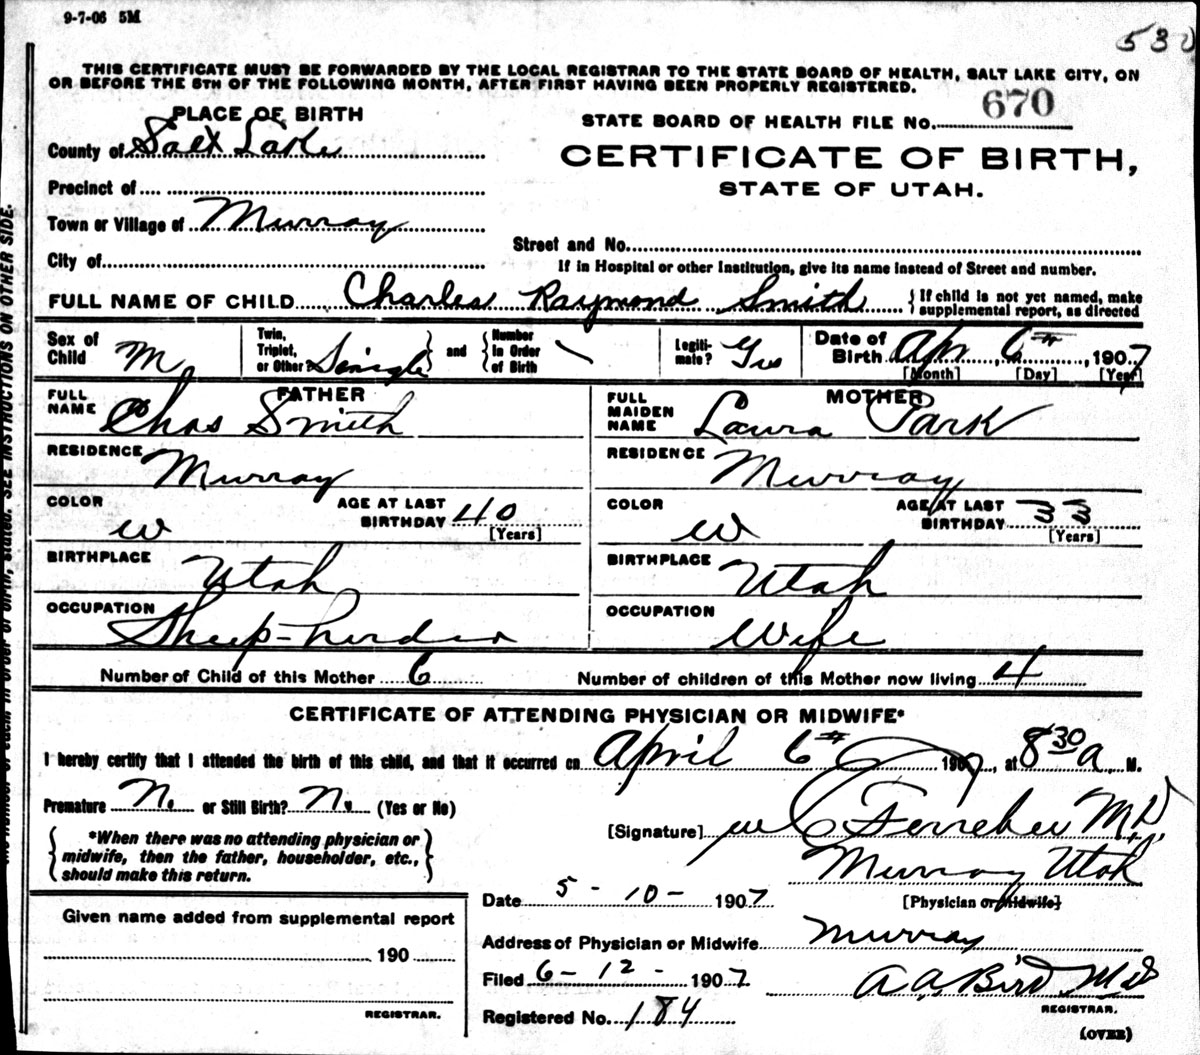 9-7-06 5M
530
THIS CERTIFICATE MUST BE FORWARDED BY THE LOCAL REGISTRAR TO THE STATE BOARD OF HEALTH, SALT LAKE CITY, ON
OR BEFORE THE 5TH OF THE FOLLOWING MONTH, AFTER FIRST HAVING BEEN PROPERLY REGISTERED.
PLACE OF BIRTH
STATE BOARD OF HEALTH FILE NO. 670
County of Salt Lake
CERTIFICATE OF BIRTH,
STATE OF UTAH.
Precinct of
Town or Village of Murray
Street and No.
City of
If in Hospital or other Institution, give its name instead of Street and number.
FULL NAME OF CHILD Charles Raymond Smith {If child is not yet named, make supplemental report, as directed
Sex of Child M Twin, Triplet, or Other? Single and Number in Order of Birth Legitimate? Yes Date of Birth Apr 6th, 1907
[Month] [Day] [Year]
FATHER MOTHER
FULL NAME Chas Smith FULL MAIDEN NAME Laura Park
RESIDENCE Murray RESIDENCE Murray
COLOR W AGE AT LAST BIRTHDAY 40 [Years] COLOR W AGE AT LAST BIRTHDAY 33 [Years]
BIRTHPLACE Utah BIRTHPLACE Utah
OCCUPATION Sheep-herder OCCUPATION Wife
Number of Child of this Mother 6 Number of children of this Mother now living 4
CERTIFICATE OF ATTENDING PHYSICIAN OR MIDWIFE*
I hereby certify that I attended the birth of this child, and that it occurred on April 6th 1907, at 8 30 a M.
Premature No. or Still Birth? No. (Yes or No)
*When there was no attending physician or
midwife, then the father, householder, etc.,
should make this return.
[Signature] W C Ferrebee M.D.
Murray Utah
[Physician or midwife]
Date 5-10-1907
Given name added from supplemental report
190
REGISTRAR.
Address of Physician or Midwife Murray
Filed 6-12-1907 A A Bird M D
REGISTRAR.
Registered No. 184
(OVER)
SEE INSTRUCTIONS ON OTHER SIDE.